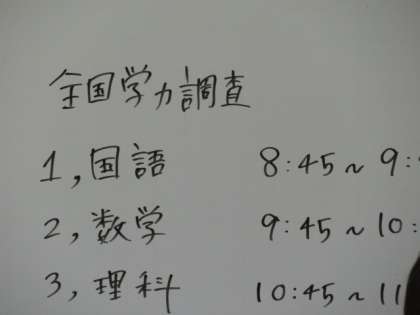 全国学力調査
1, 国語 8:45~9:
2, 数学 9:45~10:
3, 理科 10:45~11